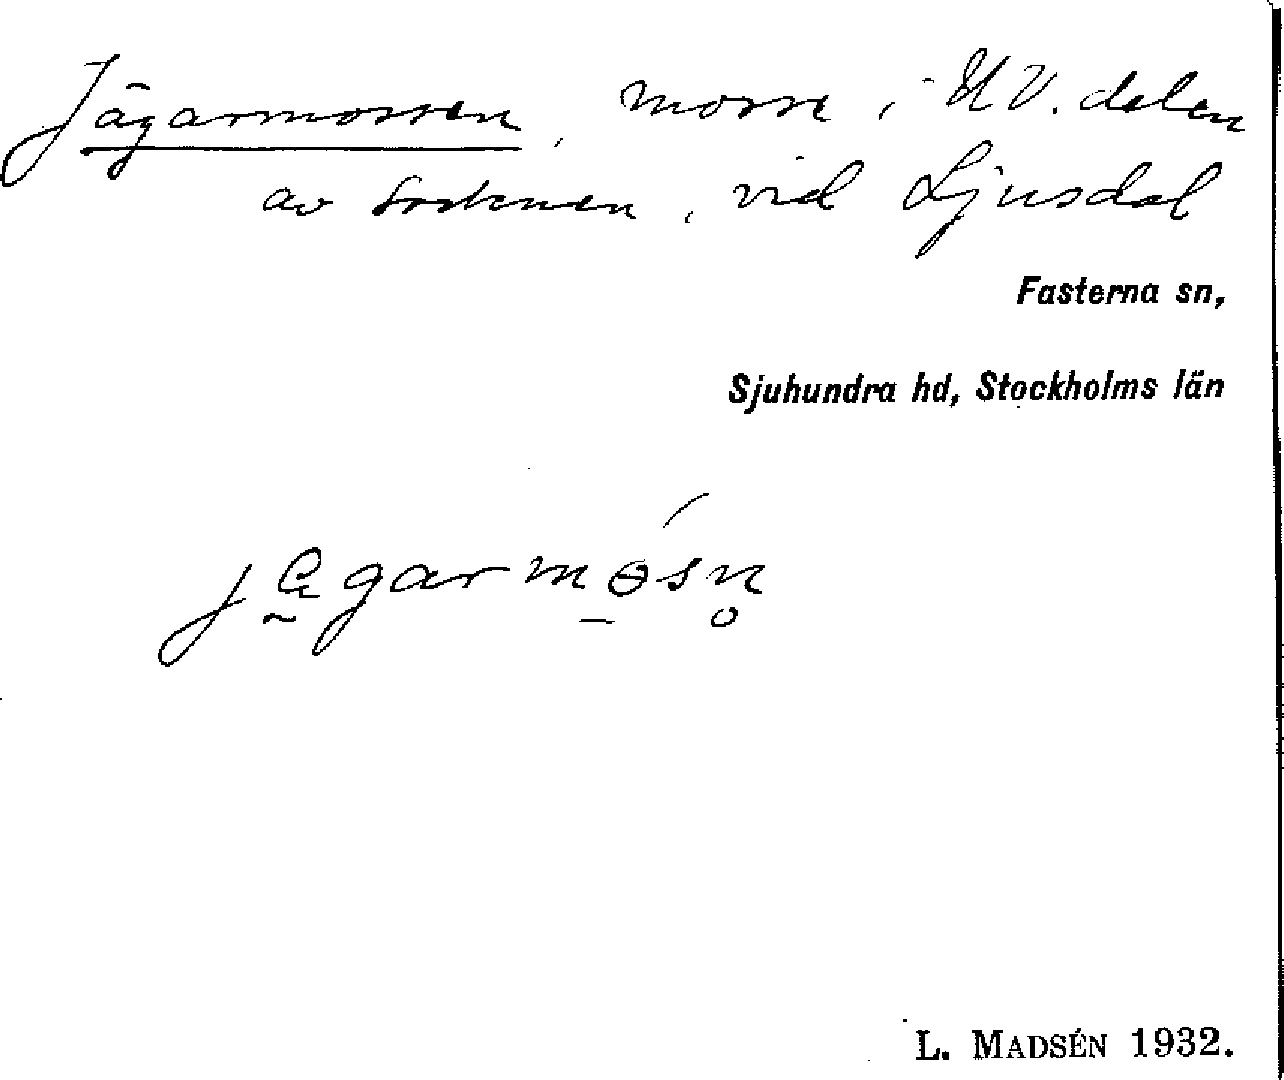 Jägarmossen, mosse i NV. delen
av socknen, vid Ljusdal
Fasterna sn,
Sjuhundra hd, Stockholms län
L. MADSÉN 1932.